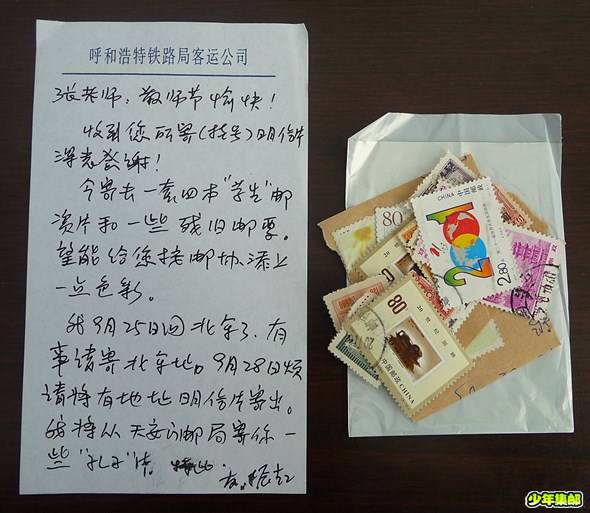 呼和浩特铁路局客运公司
张老师，教师节愉快！
收到您所寄(挂号)明信片
深表感谢！
今寄去一套四本"学生"邮
资片和一些残旧邮票。
望能给您按邮协添上
一点色彩。
我9月25日回北京了，有
事请寄北京地。9月28日烦
请将有地址明信片寄出。
我将从天安门邮局寄你一
些"孔子"片。
友.振
80
中国邮政
CHINA
2.80元
80
中国邮政 CHINA
少年集邮